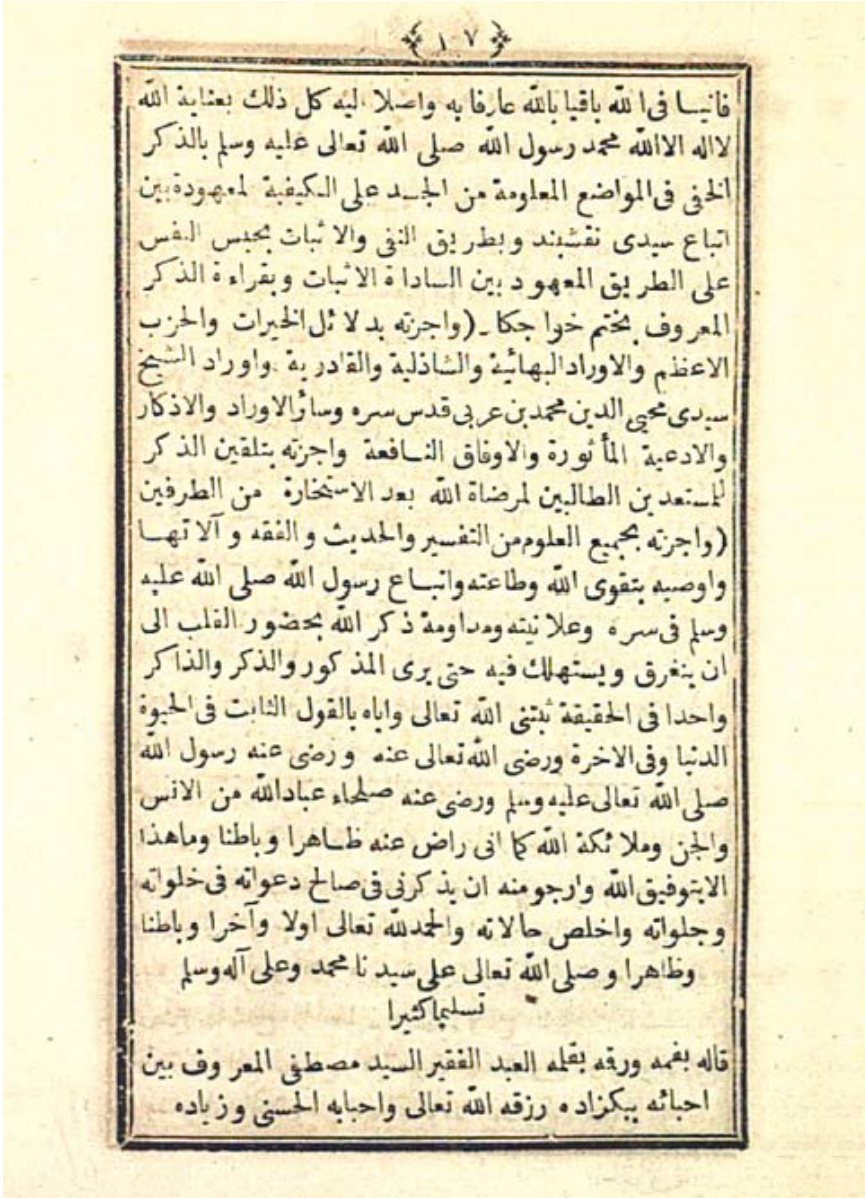 ١٧
فانيا فى الله باقيا بالله عارفا به واصلا اليه كل ذلك بعناية الله
لااله الاالله محمد رسول الله صلى الله تعالى عليه وسلم بالذكر
الخفى فى المواضع المعلومة من الجسد على الكيفية لمعهودة بين
اتباع سيدى نقشبند وبطريق النفى والاثبات بحبس النفس
على الطريق المعهود بين السادا ة الاثبات وبقراءة الذكر
المعروف بختم خواجكا ـ (واجزته بدلائل الخيرات والحزب
الاعظم والاوراد البهائية والشاذلية والقادرية واوراد الشيخ
سيدى محيى الدين محمد بن عربى قدس سره وسائر الاوراد والاذكار
والادعية المأثورة والاوفاق النافعة واجزته بتلقين الذكر
للمستعدين الطالبين لمرضاة الله بعد الاستخارة من الطرفين
(واجزته بجميع العلوم من التفسير والحديث والفقه وآلاتها
واوصيه بتقوى الله وطاعته واتباع رسول الله صلى الله عليه
وسلم فى سره وعلانيته ومداومة ذكر الله بحضور القلب الى
ان ينغرق ويستهلك فيه حتى يرى المذكور والذكر والذاكر
واحدا فى الحقيقة ثبتنى الله تعالى واياه بالقول الثابت فى الحيوة
الدنيا وفى الاخرة ورضى الله تعالى عنه ورضى عنه رسول الله
صلى الله تعالى عليه وسلم ورضى عنه صلحاء عبادالله من الانس
والجن وملائكة الله كما انى راض عنه ظاهرا وباطنا وماهذا
الابتوفيق الله وارجو منه ان يذكرنى فى صالح دعواته فى خلواته
وجلواته واخلص حالاته والحمدلله تعالى اولا وآخرا وباطنا
وظاهرا وصلى الله تعالى على سيدنا محمد وعلى آله وسلم
تسليما كثيرا
قاله بفمه ورقه بقلمه العبد الفقير السيد مصطفى المعروف بين
احبائه ببكزاده رزقه الله تعالى واحبابه الحسنى وزياده